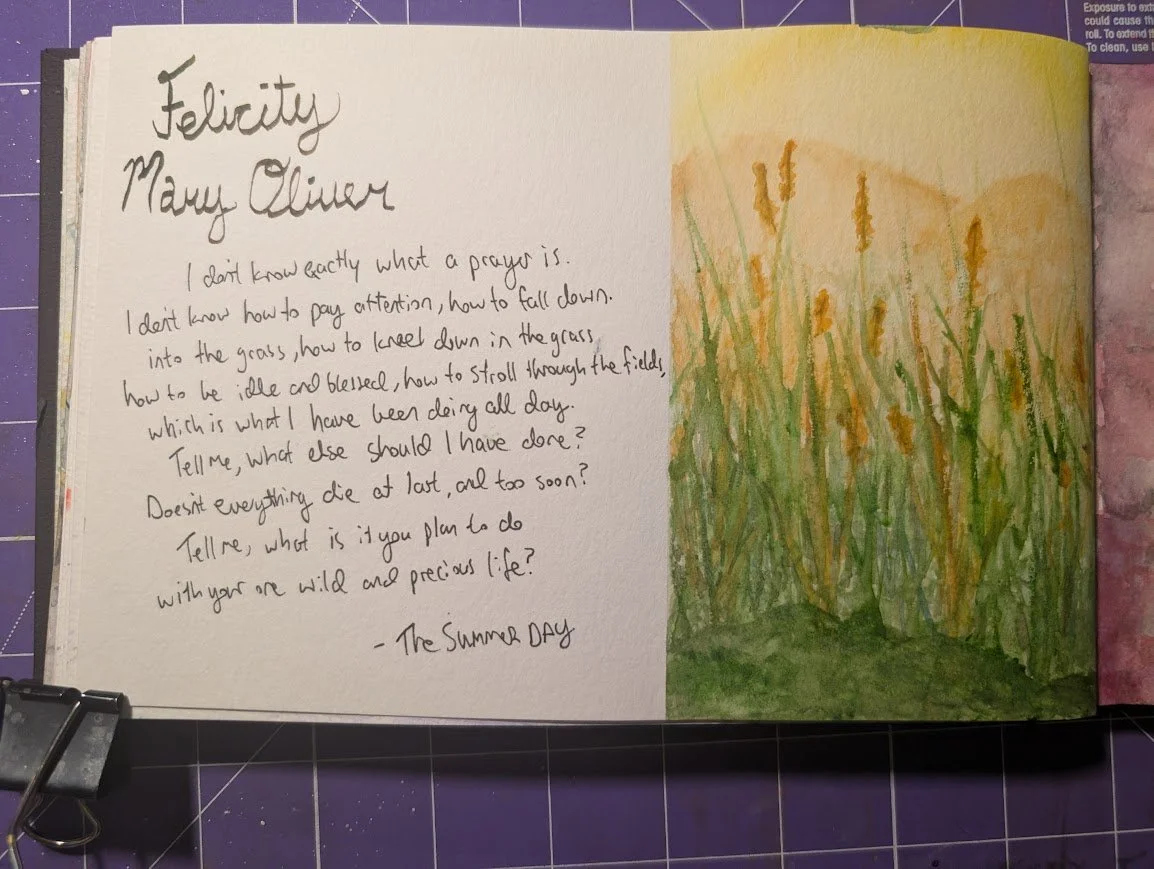 Felicity
Mary Oliver
I don't know exactly what a prayer is.
I don't know how to pay attention, how to fall down.
into the grass, how to kneel down in the grass
how to be idle and blessed, how to stroll through the fields,
which is what I have been doing all day.
Tell me, what else should I have done?
Doesn't everything die at last, and too soon?
Tell me, what is it you plan to do
with your one wild and precious life?
- The Summer DAY
Exposure to
could cause
roll. To extend
To clean, use